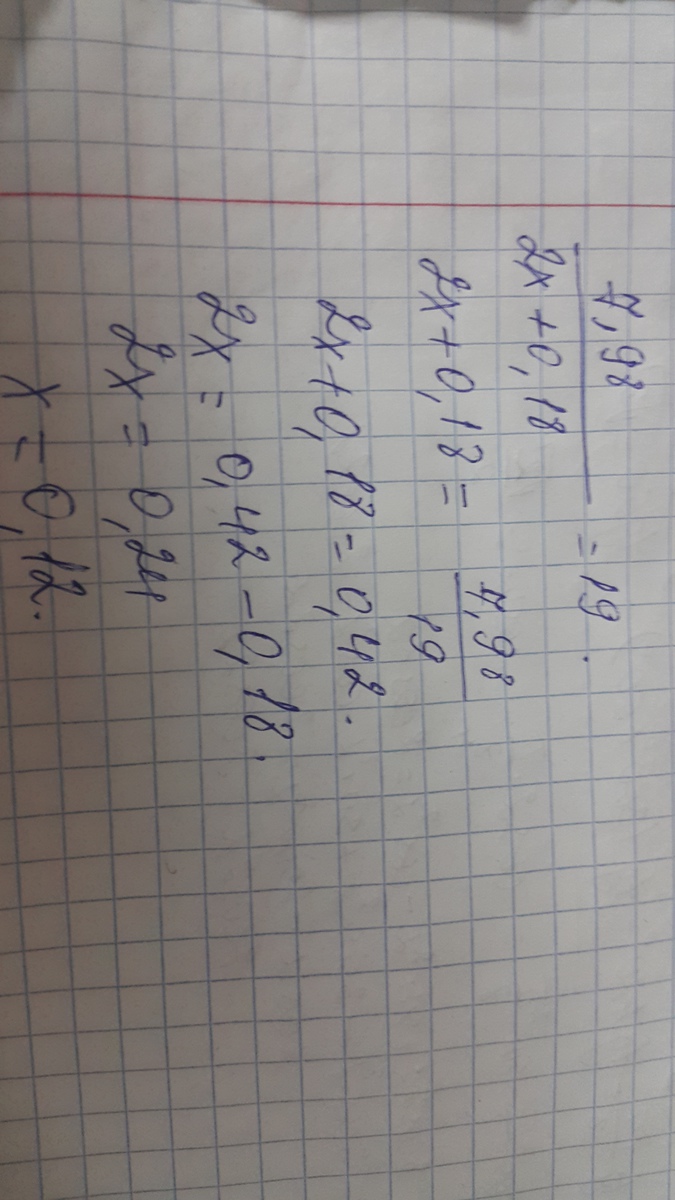 7,98
2x + 0,18 = 19.
2x + 0,18 = 7,98
19
2x + 0,18 = 0,42.
2x = 0,42 - 0,18.
2x = 0,24
x = 0,12.